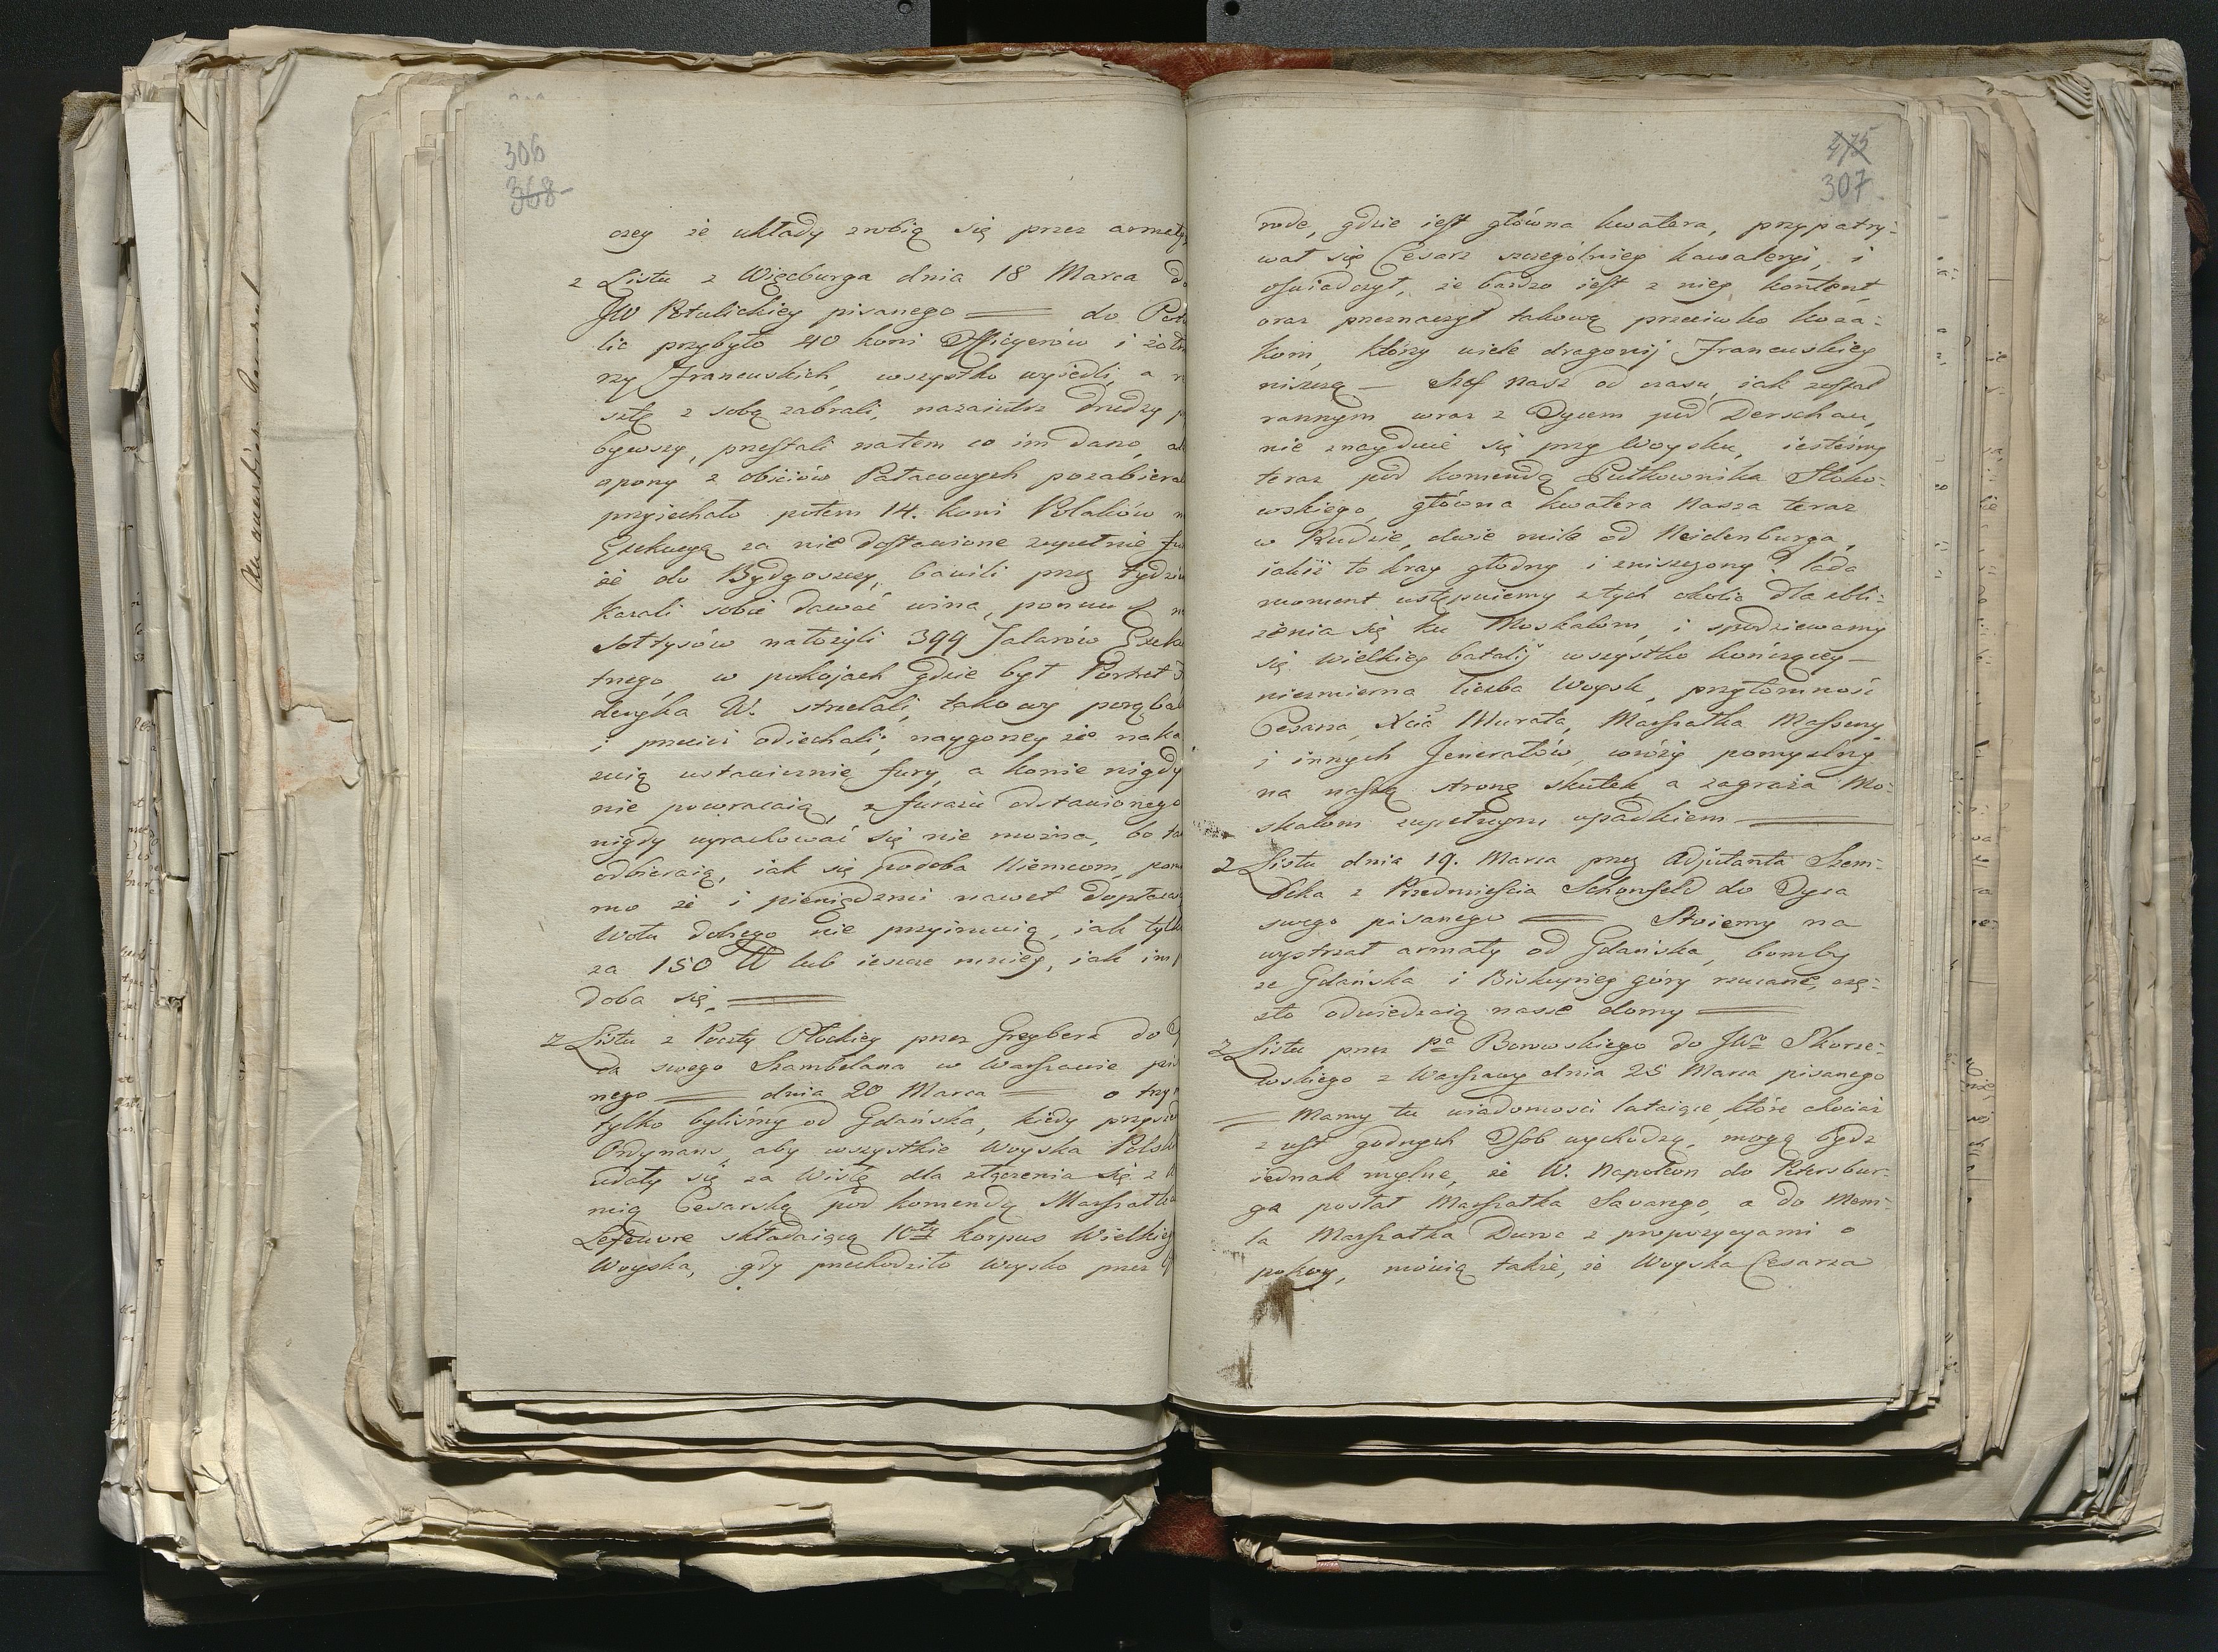 306
368
czey że układy zrobią się przez armaty
z Listu z Więcburga dnia 18 Marca do
JW Potulickiey pisanego — do Potu
lic przybyło 40 koni Officyerów i żołn
rzy Francuskich, wszystko wyiedli, a r
sztę z sobą zabrali, nazaiutrz drudzy p
bywszy, przestali natem co im dano, al
opony z obiciów Pałacowych pozabieral
przyiechało potem 14. koni Polaków n
Exekucyą za nie dostawione zupełnie fu
że do Bydgoszczy, bawili przez tydzie
kazali sobie dawać wina, ponczu & n
Sołtysów nałożyli 399 Talarów Exeku
tnego w pokojach gdzie był Portret F
deryka W. strzelali, takowy porąbal
i przecież odiechali; naygorzey że naka
zuią ustawicznie fury, a konie nigdy
nie powracaią, z furażu odstawionego
nigdy wyrachować się nie można, bo ta
odbieraią, iak się podoba Niemcom, pom
mo że i pieniędzmi nawet dopłacaią
Wołu dobrego nie przyimuią, iak tylk
za 150 lub ieszcze mniey, iak im p
doba się. —
z Listu z Poczty Płockiey przez Greybera do O
ca swego Szambelana w Warszawie pis
nego — dnia 20 Marca — o trzy
tylko byliśmy od Gdańska, kiedy przysze
Ordynans, aby wszystkie Woyska Polsk
udały się za Wisłę dla złączenia się z
mią Cesarską pod komendą Marszałka
Lefeuvre składaiącą 10ty korpus Wielkiey
Woyska, gdy przechodziło Woysko przez
475
307
rode, gdzie iest główna kwatera, przypatry-
wał się Cesarz szczególniey kawaleryi, i
oświadczył, że bardzo iest z niey kontent,
oraz przeznaczył takową przeciwko koza-
kom, którzy wiele dragonij Francuskiey
niszczą — Szef nasz od czasu, iak został
rannym wraz z Oycem pod Derschau,
nie znayduie się przy Woysku, iesteśmy
teraz pod komendą Pułkownika Skko-
wskiego, główna kwatera Nasza teraz
w Rudzie, dwie mile od Neidenburga,
iakiż to kray głodny i zniszczony? lada
moment ustąpiemy z tych okolic dla zbli-
żenia się ku Moskalom, i spodziewamy
się wielkiey batalij wszystko kończącey —
niezmierna liczba Woysk, przytomność
Cesarza, Xcia Murata, Marszałka Masseny
i innych Jenerałów, wróży pomyślny
na naszą stronę skutek, a zagraża Mo-
skalom zupełnym upadkiem —
Z Listu dnia 19. Marca przez Adjutanta Szem-
beka z Przedmieścia Schonfeld do Oyca
swego pisanego — Stoiemy na
wystrzał armaty od Gdańska, bomby
ze Gdańska i Biskupiey góry rzucane, czę-
sto odwiedzaią nasze domy —
z Listu przez Pa Borowskiego do JWo Skorze-
wskiego z Warszawy dnia 25 Marca pisanego
— Mamy tu wiadomości lataiące, które chociaż
z ust godnych Osob wychodzą, mogą bydz
iednak mylne, że W. Napoleon do Petersbur-
ga posłał Marszałka Savarego, a do Mem-
la Marszałka Duroc z propozycyami o
pokoy, mówią także, że Woyska Cesarza